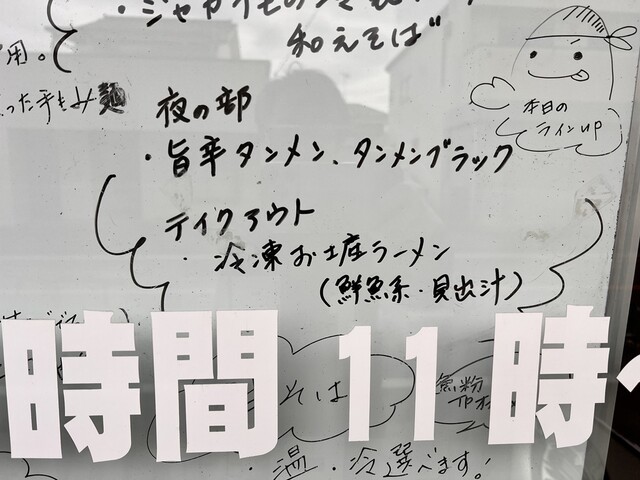 和えそば"
用。
った手もみ麺
本日の
ラインup
夜の部
・旨辛タンメン、タンメンブラック
テイクアウト
・冷凍お土産ラーメン
(鮮魚系・貝出汁)
時間 11時
そば
魚粉
・温・冷選べます!